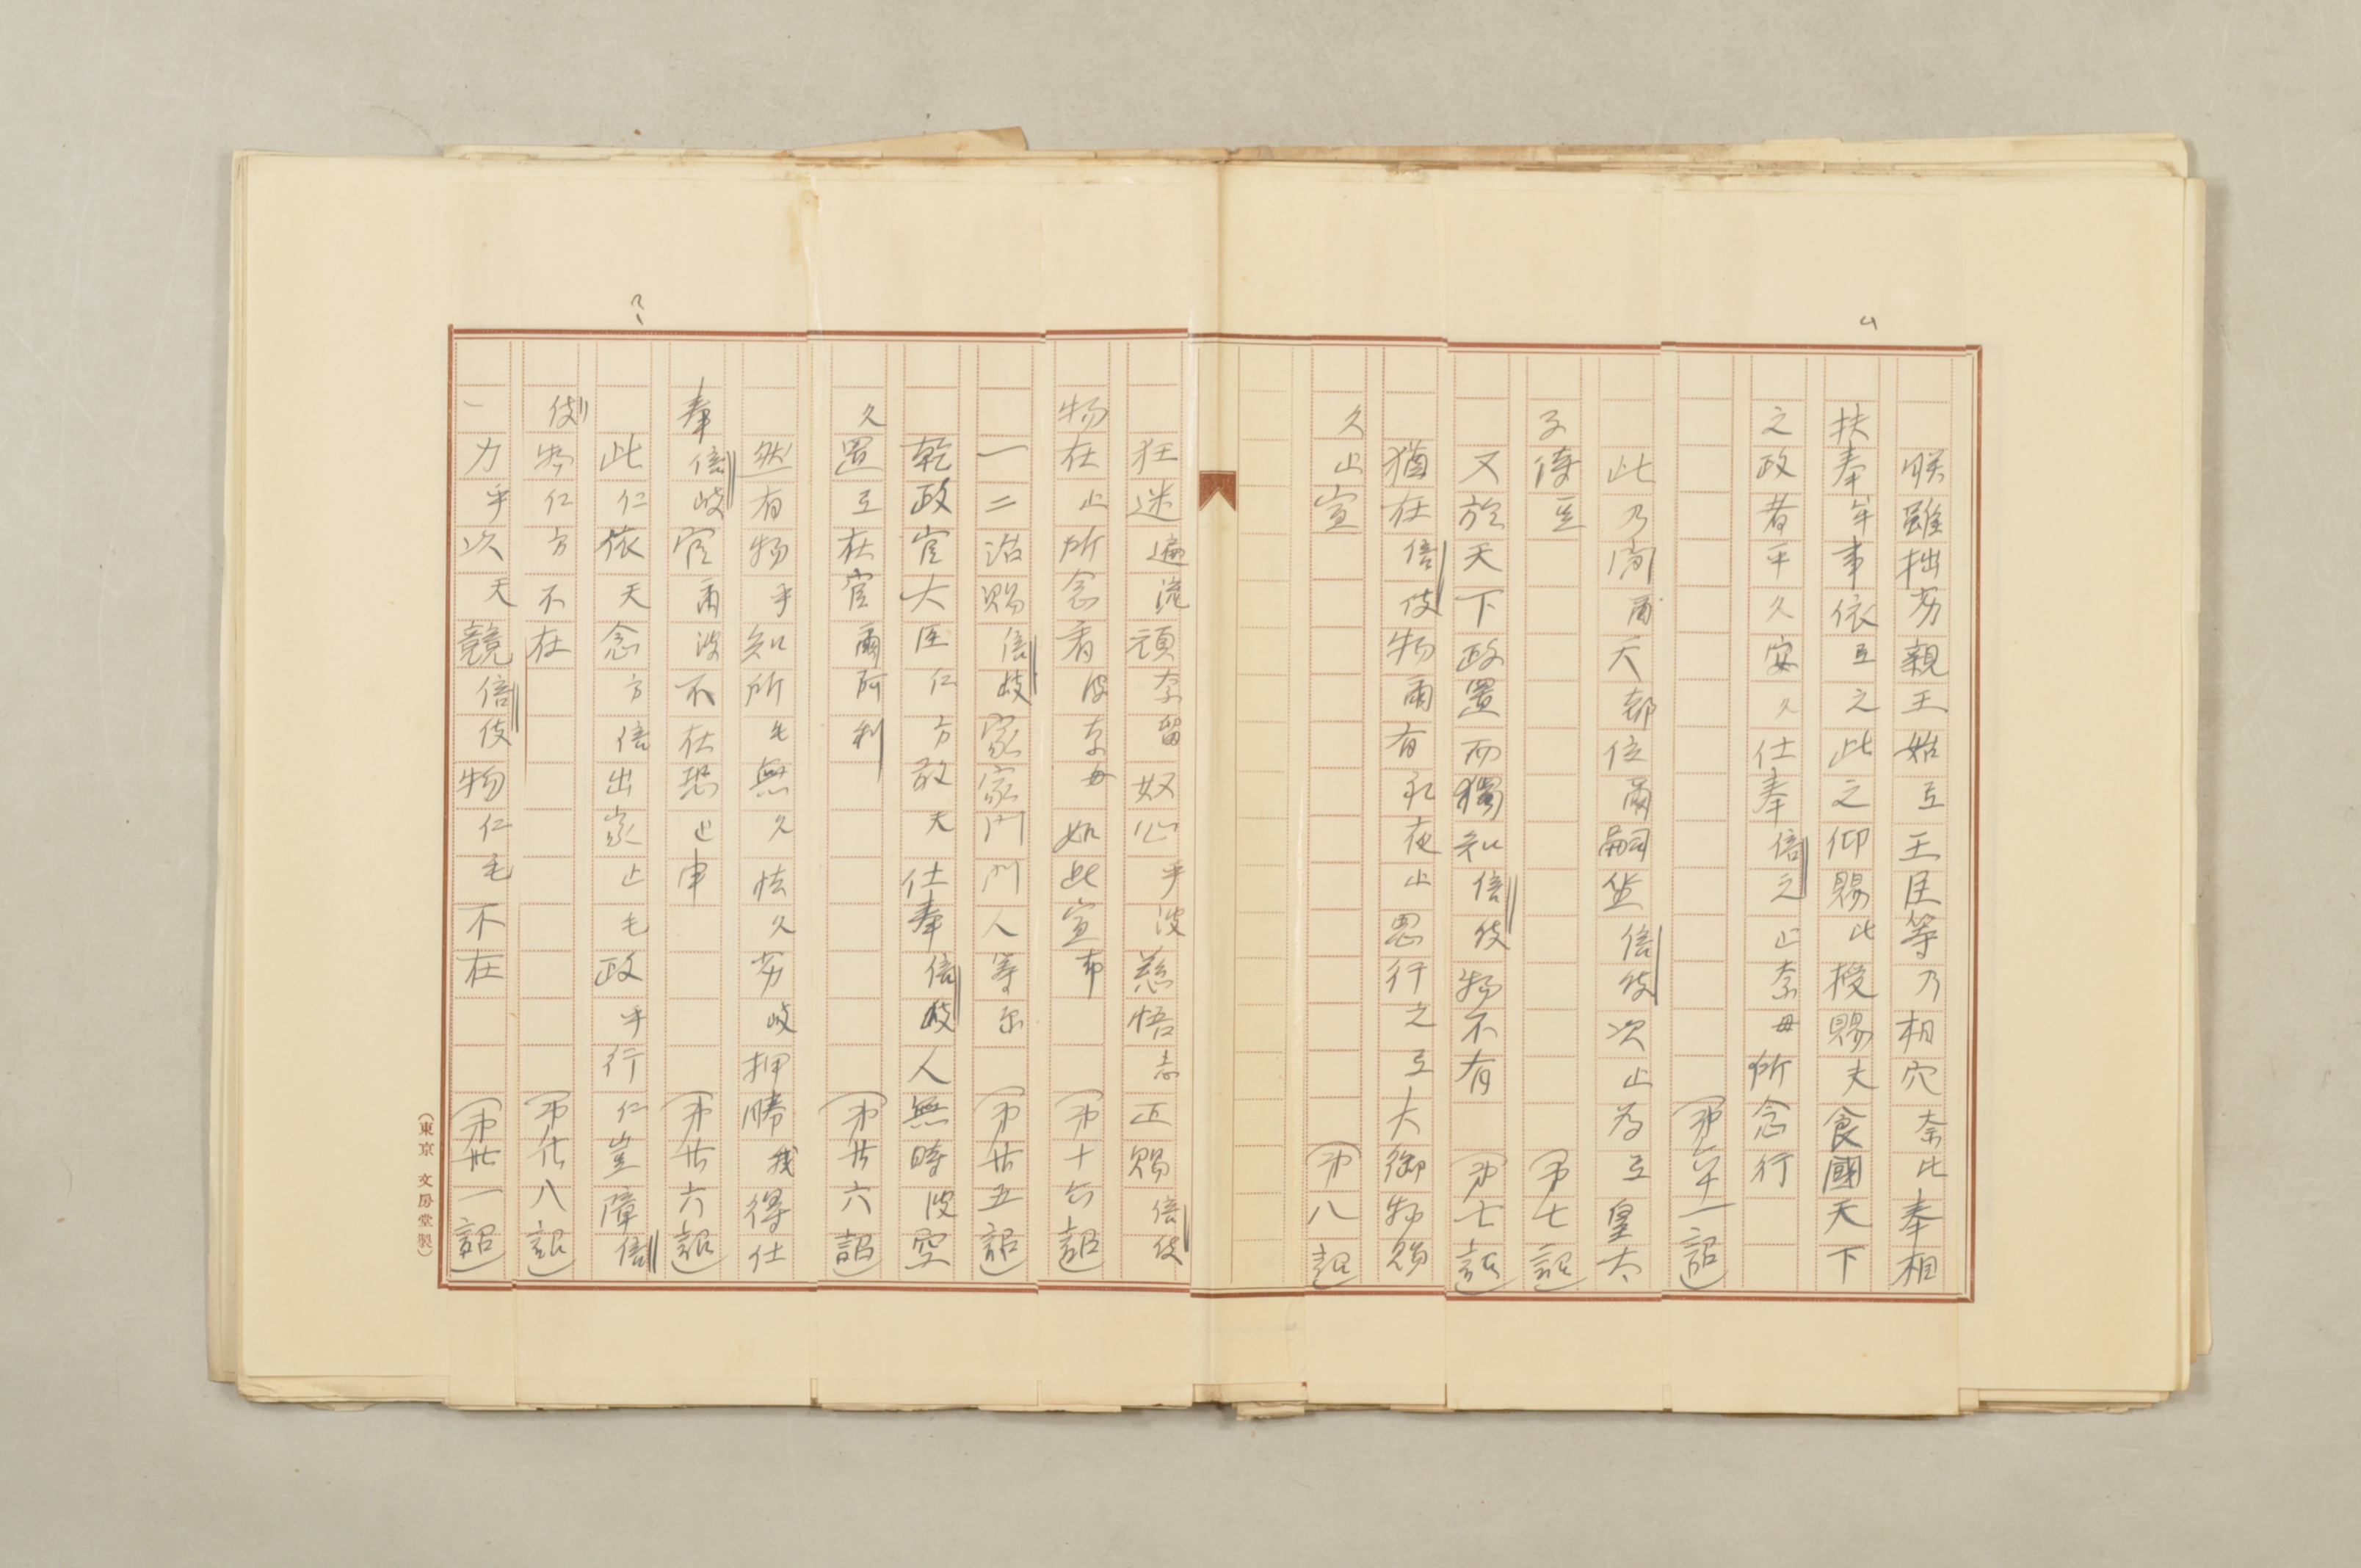 朕雖拙劣親王始互王臣等乃相穴奈比奉相
扶奉牟事依互之此之仰賜比授賜夫食國天下
之政者平久安久仕奉倍之止奈母所念行
(第六十一詔)
此乃間爾天都位爾嗣坐倍伎次止為互皇太
子侍豆
(第七詔)
又於天下政置而獨知倍伎物不有
(第七詔)
猶在倍伎物爾有礼夜止思行之互大御物賜
久止宣
(第八詔)
狂迷遍流頑奈留奴心乎波慈悟志正賜倍伎
物在止所念看波奈母如此宣布
(第十六詔)
一二治賜倍岐家家門門人等尓
(第廿五詔)
乾政官大臣仁方敢天仕奉倍岐人無時波空
久置互在官爾阿利
(第廿六詔)
然有物乎知所毛無久怯久劣岐押勝我得仕
奉倍岐官爾波不在恐止申
(第廿六詔)
此仁依天念方倍出家止毛政乎行仁豈障倍
伎物仁方不在
(第廿八詔)
力乎以天競倍伎物仁毛不在
(第卅一詔)
(東京 文房堂製)